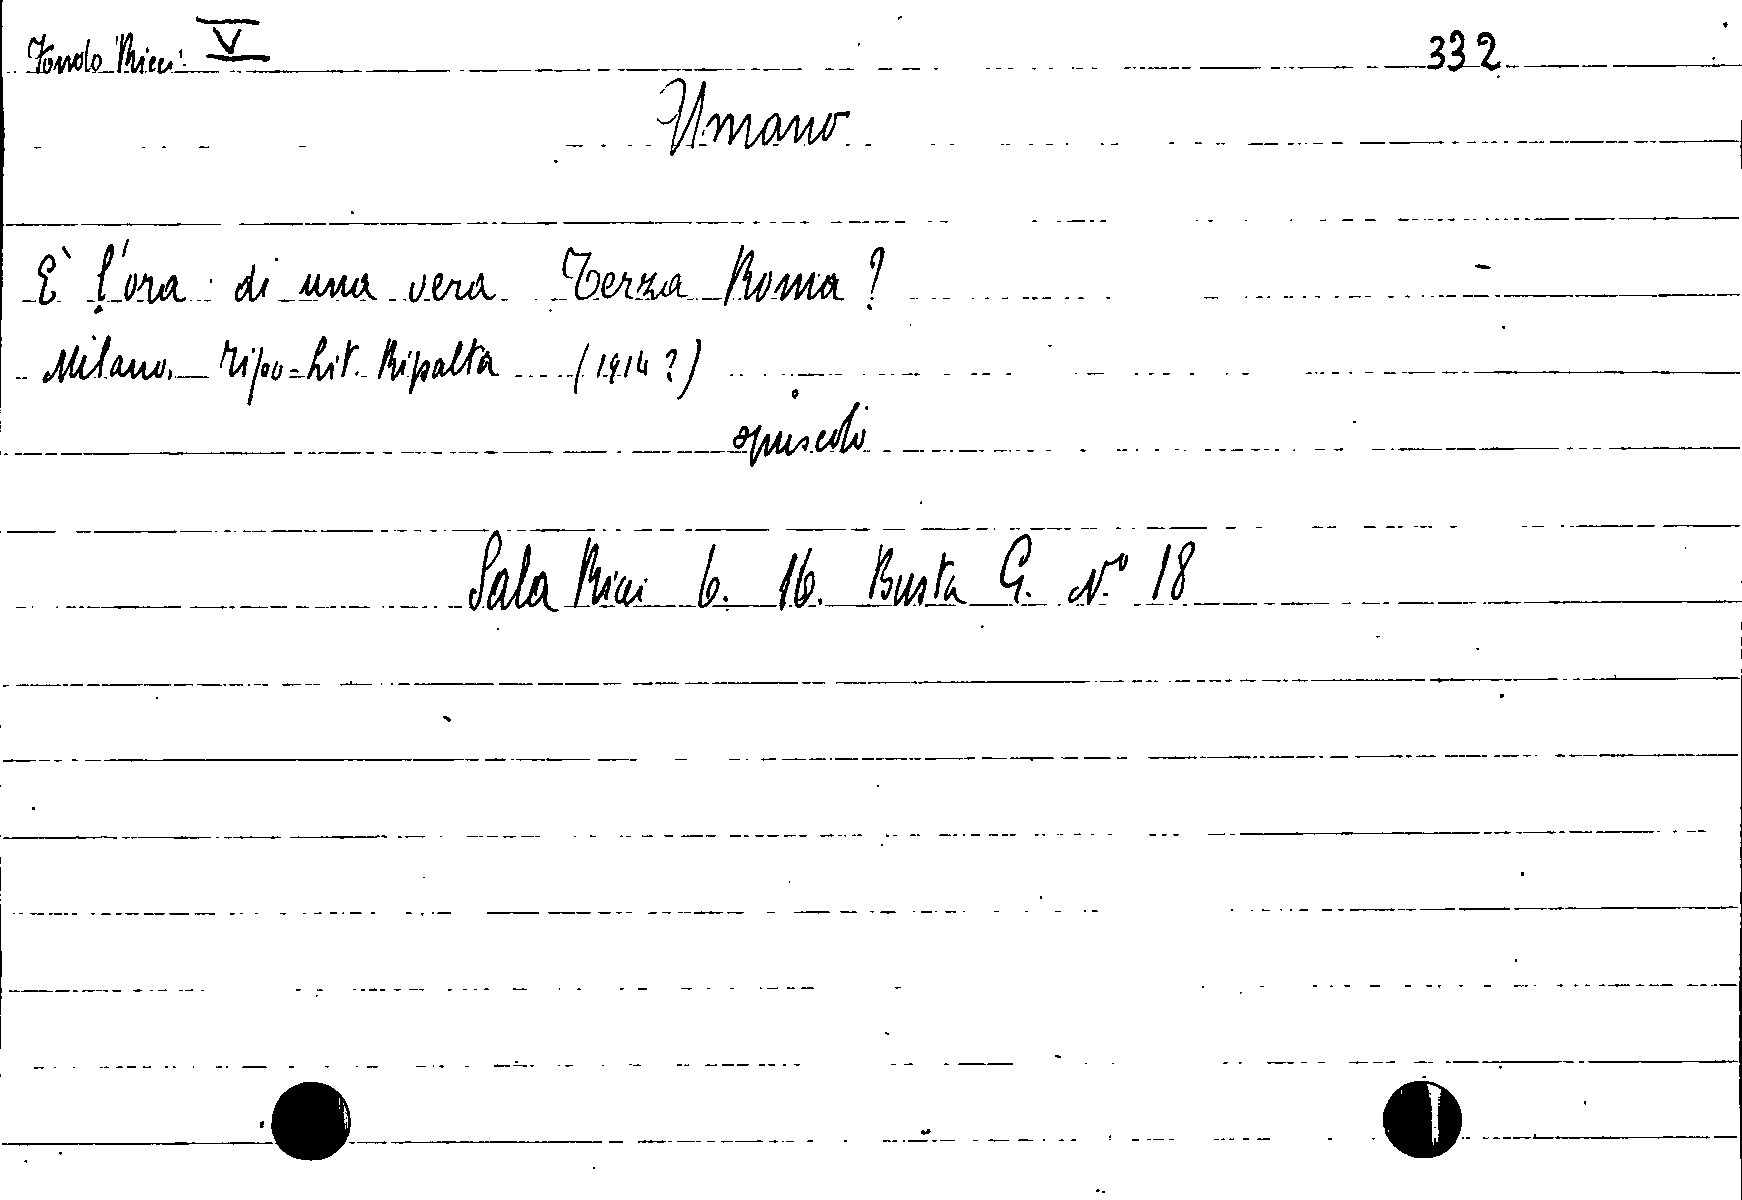 Fondo Ricci V 332
Umano
E' l'ora di una vera Terza Roma?
Milano. Tipo=Lit. Ripalta (1914?)
opuscolo
Sala Ricci 6. 16. Busta G. N.º 18